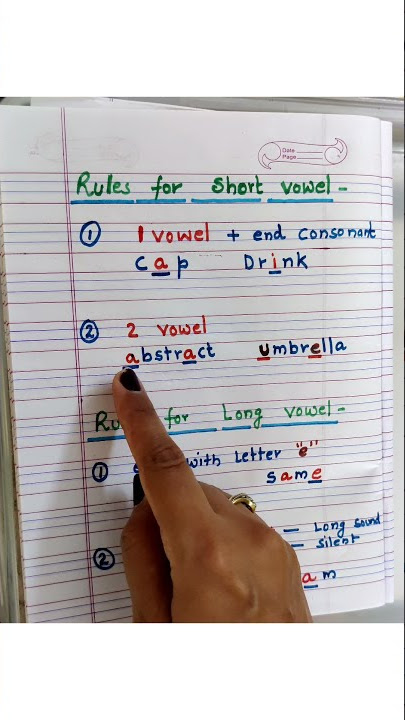 Date
Page
Rules for short vowel -
① 1 vowel + end consonant
cap Drink
② 2 vowel
abstract umbrella
for Long vowel -
① with letter "e"
same
— Long sound
— silent
②